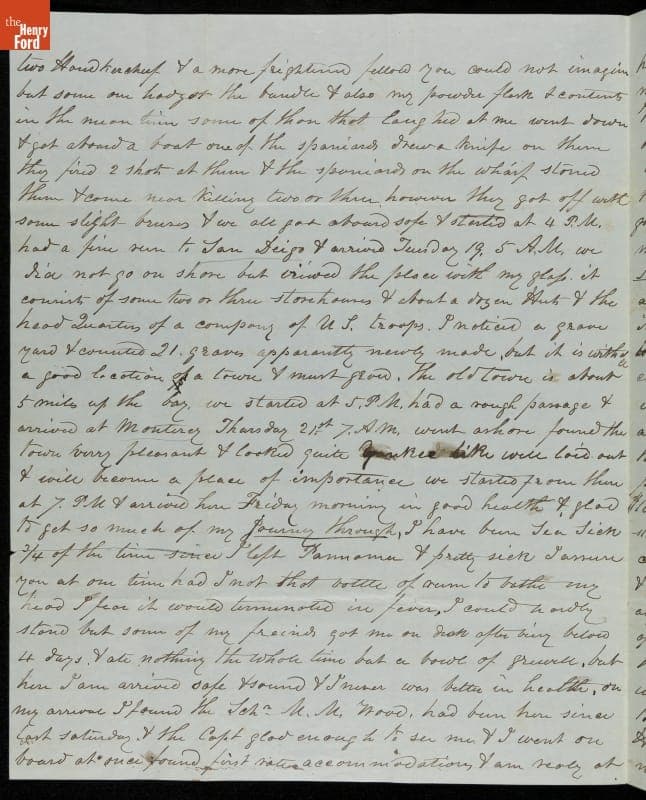 the
Henry
Ford
two Handkercheif & a more frightened fellow you could not imagin
but some one had got the bundle & also my powder flask & contents
in the mean time some of thoes that laughed at me went down
& got abord a boat one of the spaniards drew a knife on them
they fired 2 shots at them & the spaniards on the wharf stoned
them & come near killing two or three, however they got off with
some slight bruses & we all got aboard safe & started at 4 P.M.
had a fine run to San Deigo & arrived Tuesday 19, 5 A.M. we
did not go on shore but viewed the place with my glass. it
consists of some two or three storehouses & about a dozen Huts & the
head Quarters of a company of U.S. troops. I noticed a grave
yard & counted 21. graves apparantly newly made, but it is withal
a good location for a town & must grow. The old town is about
5 miles up the bay. we started at 5. P.M. had a rough passage &
arrived at Monterey Thursday 21st 7. A.M. went ashore found the
town very pleasant & looked quite Yankee like well laid out
& will become a place of importance we started from there
at 7. P.M & arrived here Friday morning in good health & glad
to get so much of my Journey through, I have been Sea Sick
3/4 of the time since I left Pannama & pretty sick I assure
you at one time had I not that bottle of rum to bathe my
head I fear it would terminated in fever, I could hardly
stand but some of my freinds got me on deck after being below
4 days, & ate nothing the whole time but a bowl of gruell, but
here I am arrived safe & sound & I never was better in health, on
my arrival I found the Schr M. M. Wood, had been here since
last saturday & the Capt glad enough to see me & I went on
board at once found first rate accommodations & am ready at